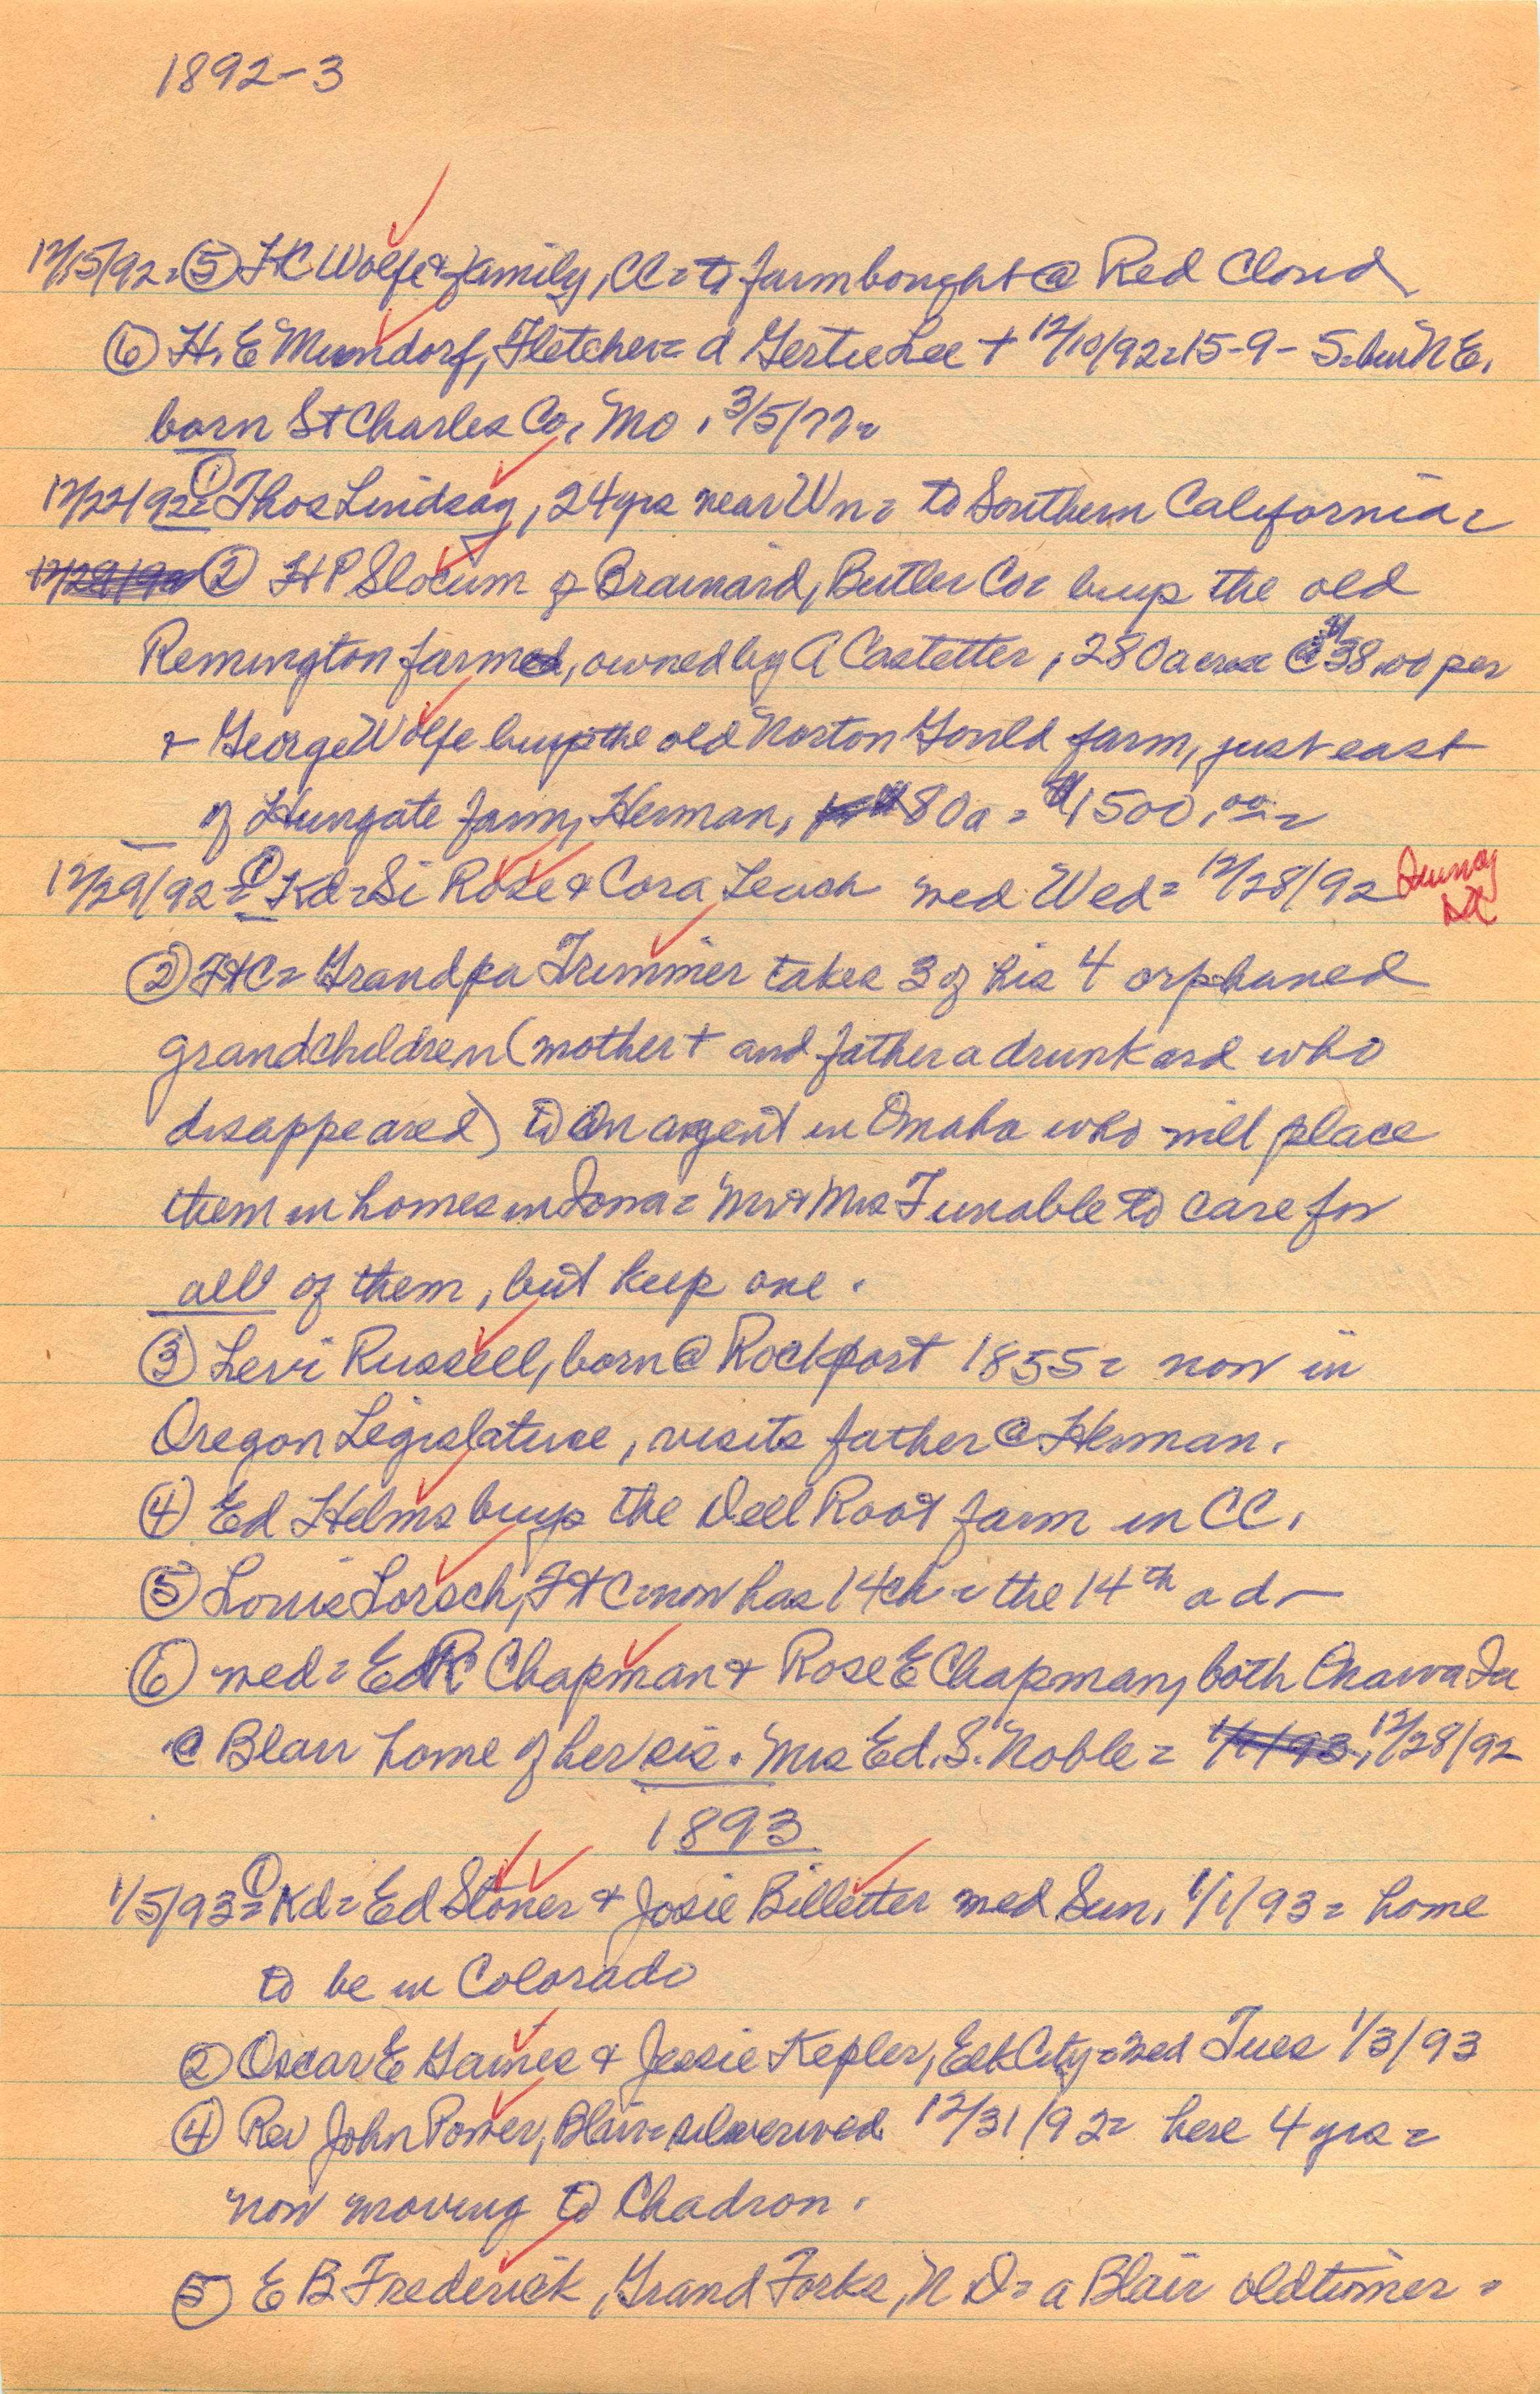 1892-3
12/15/92= ⑤ FC Wolfe & family, CC= to farm bought @ Red Cloud
⑥ H.E Mundorf, Fletcher= d Gertie Lee + 12/10/92=15-9-5=bur N E.
born St Charles Co, Mo, 3/5/77=
12/22/92= ① Thos Lindsay, 24 yrs near Wn= to Southern California=
② H P Slocum of Brainard, Butler Co= buys the old
Remington farm, owned by A Castetter, 280 acres @ $38.00 per
+ George Wolfe buys the old Norton Gould farm, just east
of Hungate farm, Herman, 80a = $1500.00=
12/29/92= ① Kd= Si Rose & Cora Leach wed Wed= 12/28/92
② Ft C= Grandpa Trimmer takes 3 of his 4 orphaned
grandchildren (mother + and father a drunkard who
disappeared) to an agent in Omaha who will place
them in homes in Iowa= Mr & Mrs T unable to care for
all of them, but keep one.
③ Levi Russell, born @ Rockport 1855= now in
Oregon Legislature, visits father @ Herman.
④ Ed Helms buys the Dell Root farm in CC.
⑤ Louis Lorsch, Ft C= now has 14 ch = the 14th a d-
⑥ wed= Ed R Chapman & Rose E Chapman, both Onawa Ia
@ Blair home of her sis. Mrs Ed. S. Noble= 1/1/93, 12/28/92
1893
1/5/93= ① Kd= Ed Stoner & Josie Billetter wed Sun, 1/1/93= home
to be in Colorado
② Oscar E Gaines & Jessie Kepler, Elk City= wed Tues 1/3/93
④ Rev John Power, Blair= silver wed 12/31/92= here 4 yrs=
now moving to Chadron.
⑤ E B Frederick, Grand Forks, N D= a Blair oldtimer=